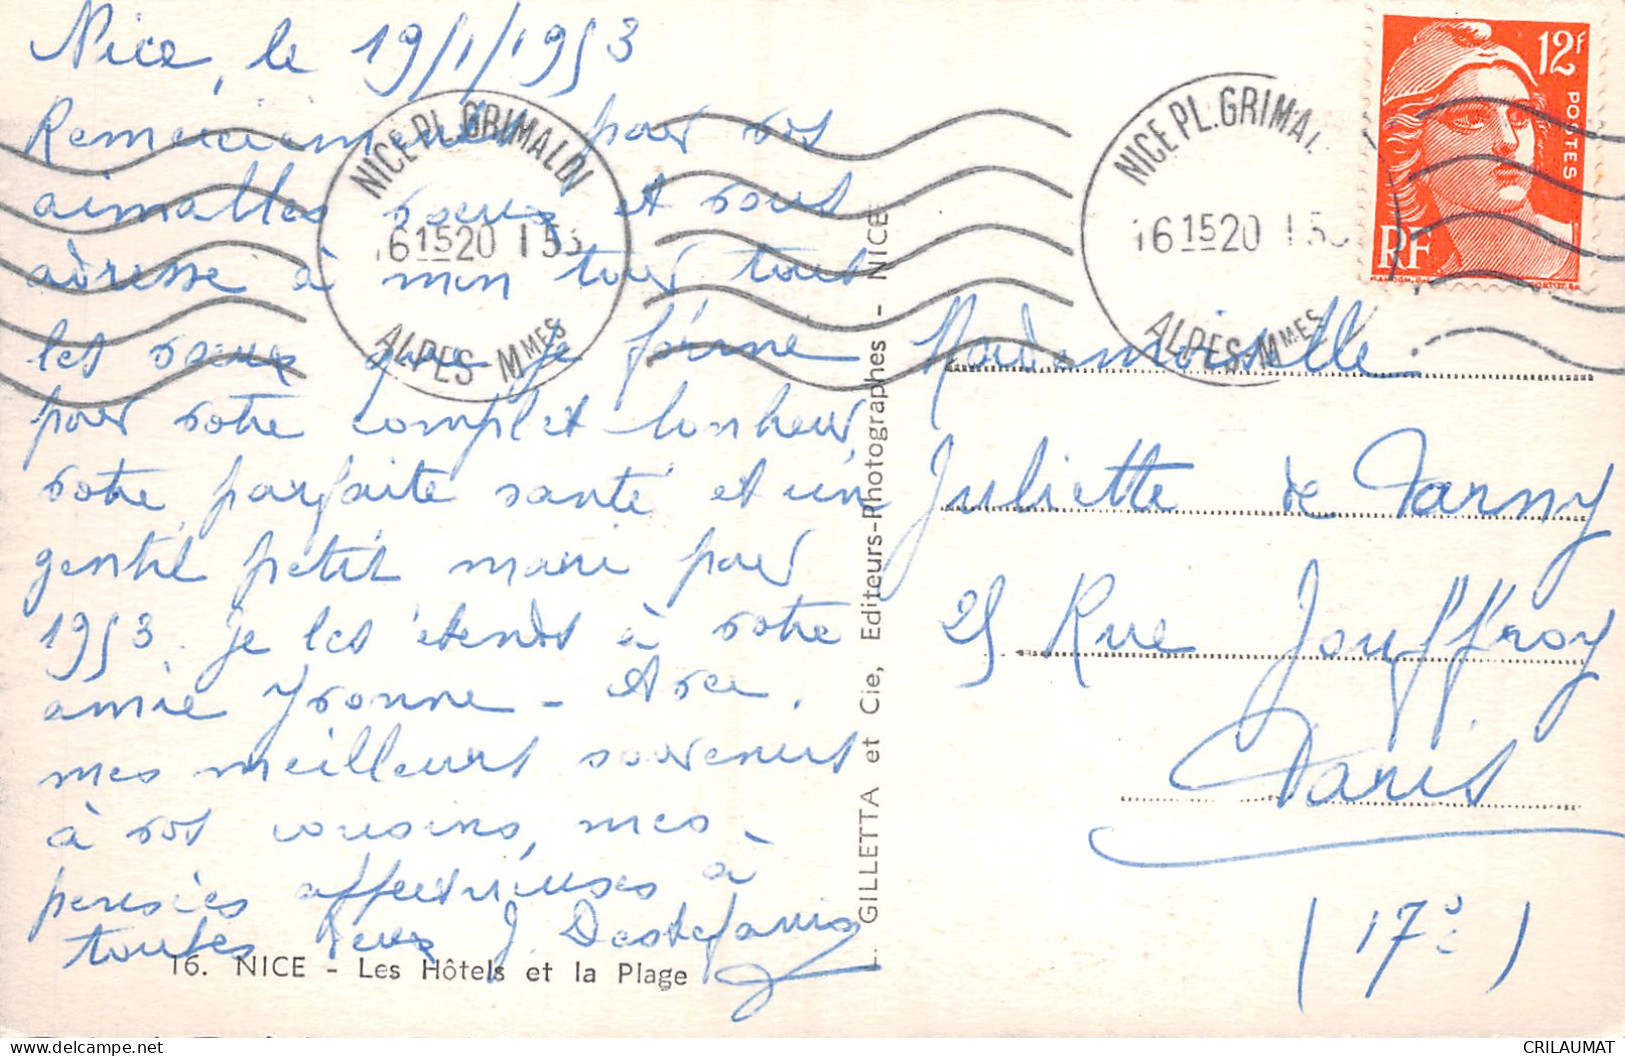 Nice, le 19/1/1953
Remerciements pour vos
aimables voeux et vous
adresse à mon tour tous
les voeux que je forme
pour votre complet bonheur,
votre parfaite santé et un
gentil petit mari pour
1953. Je les étends à votre
amie Yvonne - Avec
mes meilleurs souvenirs
à vos cousins, mes
pensées affectueuses à
toutes deux J. Destefanis
16. NICE - Les Hôtels et la Plage
NICE PL. GRIMALDI
16 15 20 1 53
ALPES MMES
GILLETTA et Cie, Editeurs-Photographes - NICE
NICE PL. GRIMA
16 15 20 1 53
ALPES-MMES
12F
POSTES
RF
Mademoiselle
Juliette de Tarny
25 Rue Jouffroy
Paris
(17e)
CRILAUMAT